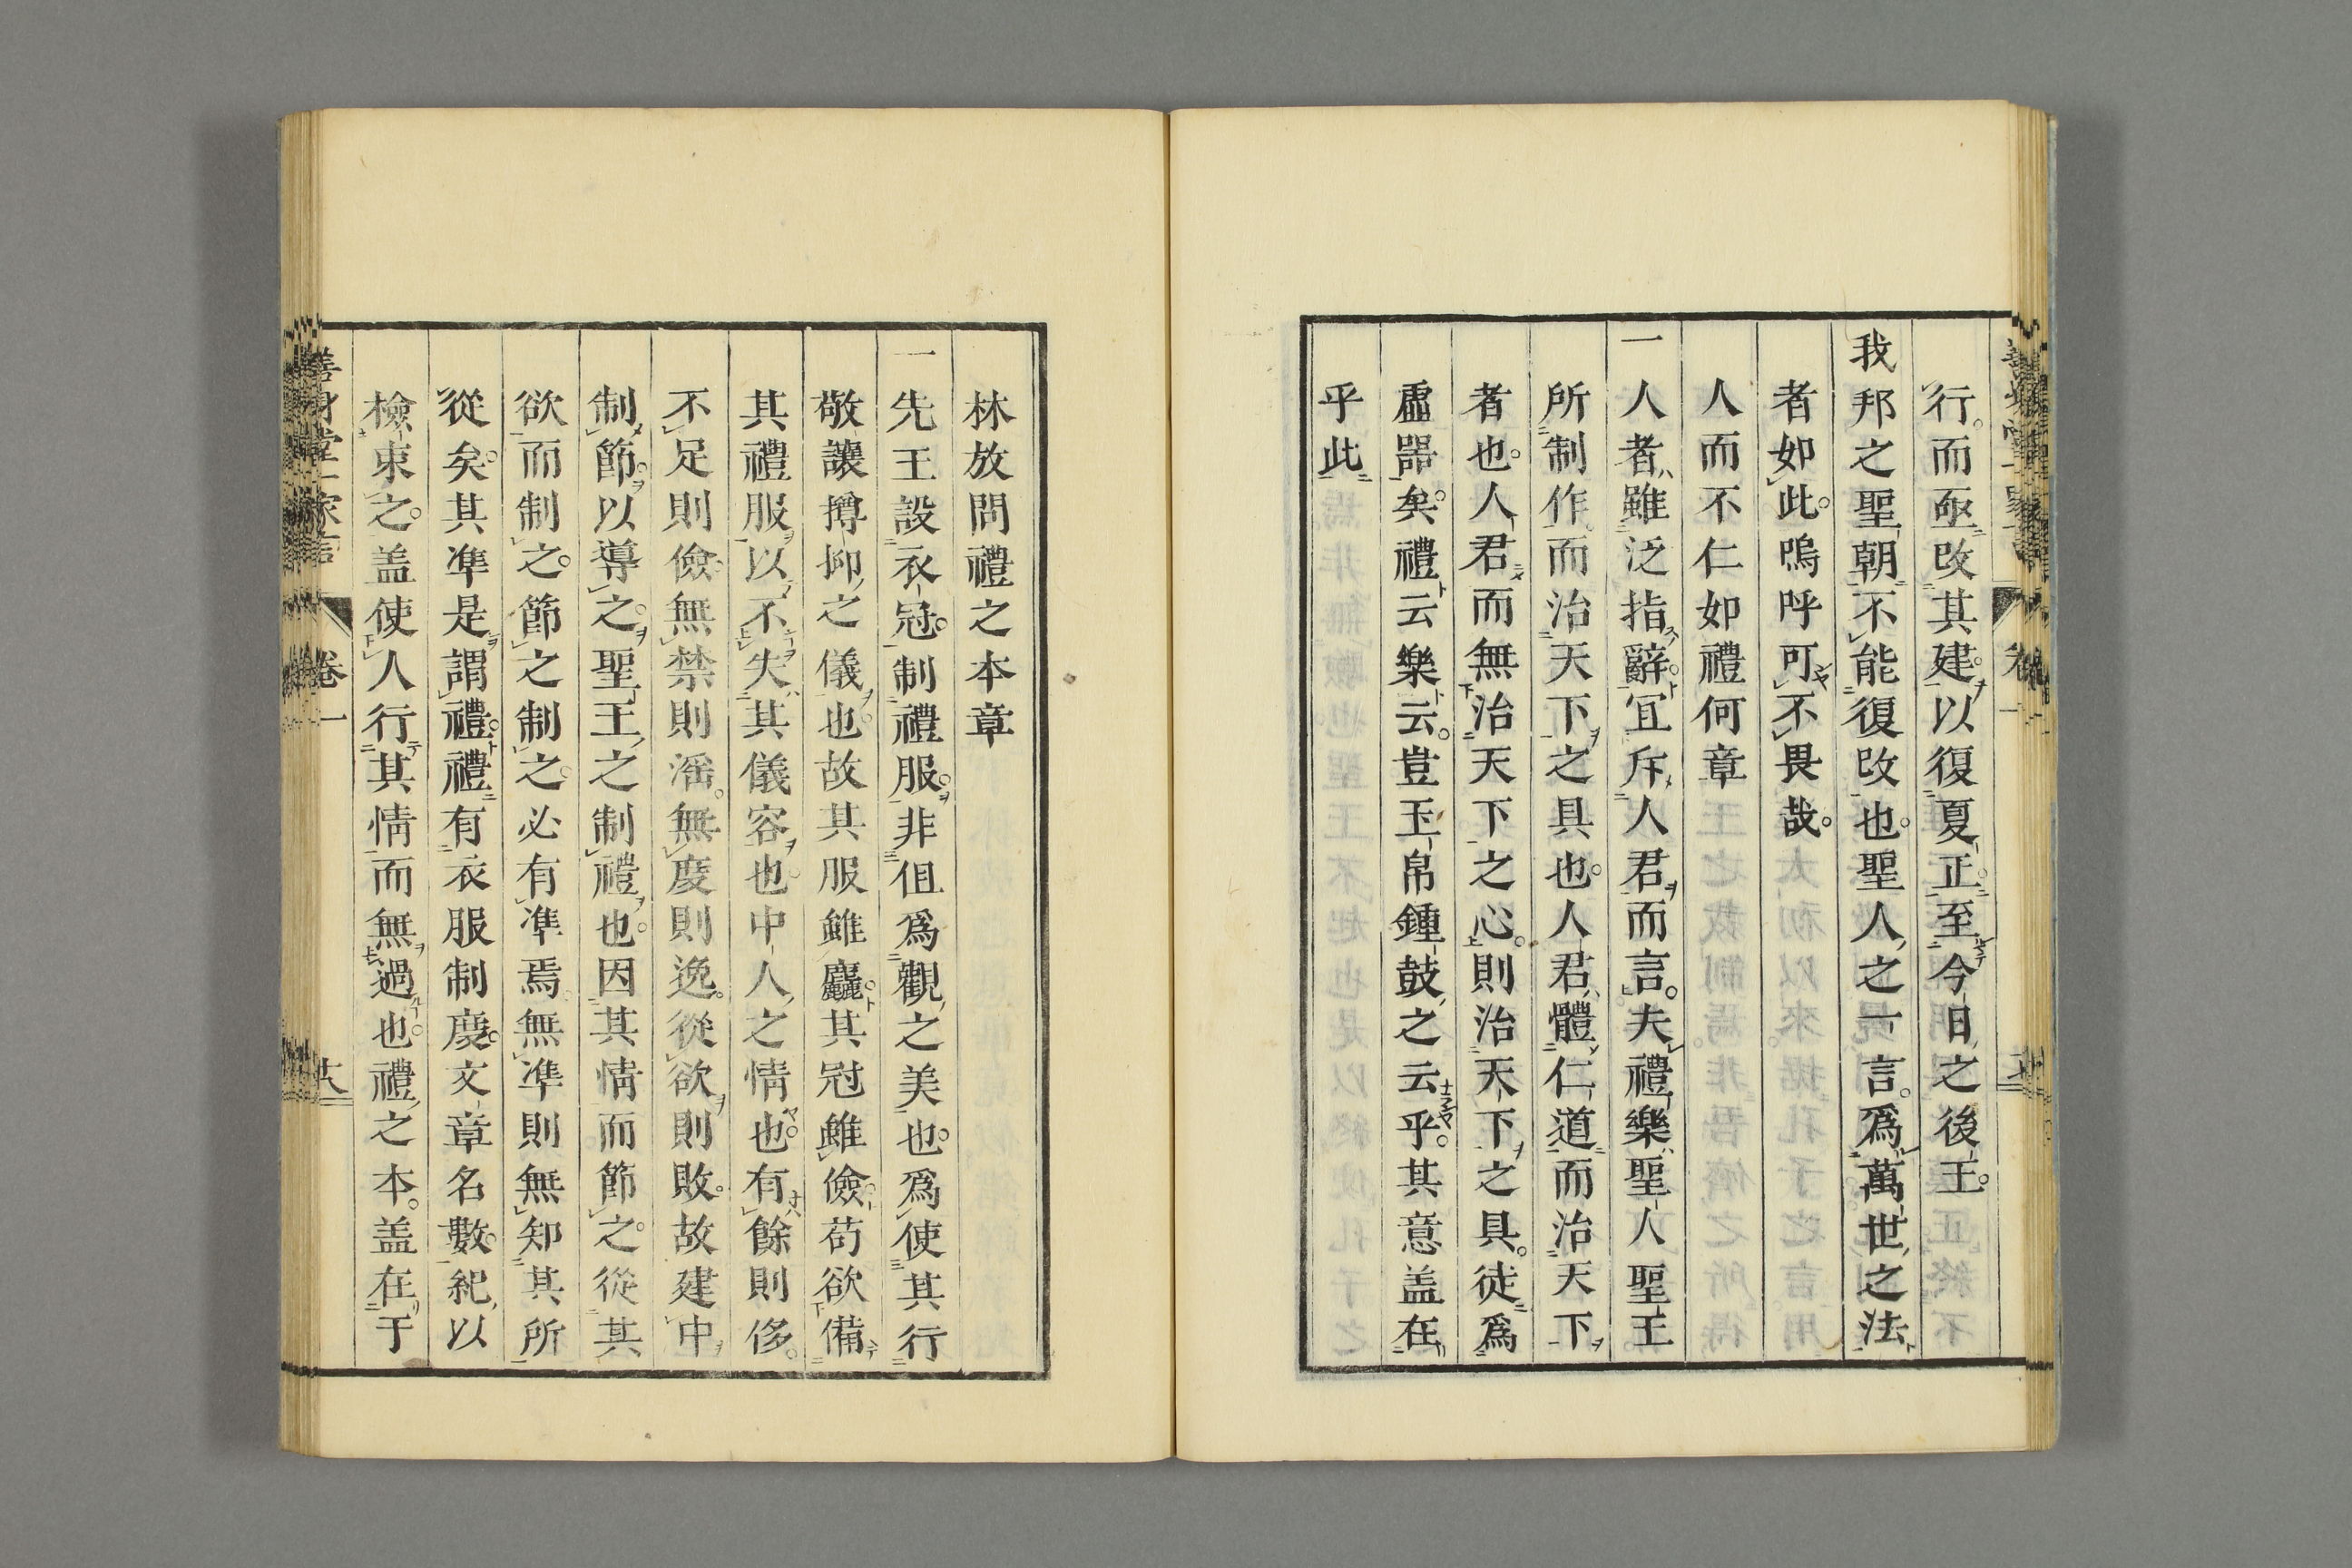 行而亟改其建以復夏正至今日之後王
我邦之聖朝不能復改也聖人之一言爲萬世之法
者如此嗚呼可不畏哉
人而不仁如禮何章
一人者雖泛指辭宜斥人君而言夫禮樂聖人聖王
所制作而治天下之具也人君體仁道而治天下
者也人君而無治天下之心則治天下之具徒爲
虛器矣禮云樂云豈玉帛鍾鼓之云乎其意盖在
乎此
林放問禮之本章
一先王設衣冠制禮服非但爲觀之美也爲使其行
敬讓撙抑之儀也故其服雖麤其冠雖儉苟欲備
其禮服以不失其儀容也中人之情也有餘則侈
不足則儉無禁則淫無度則逸從欲則敗故建中
制節以導之聖王之制禮也因其情而節之從其
欲而制之節之制之必有準焉無準則無知其所
從矣其準是謂禮禮有衣服制度文章名數紀以
檢束之盖使人行其情而無過也禮之本盖在于
善身堂一家言 卷一